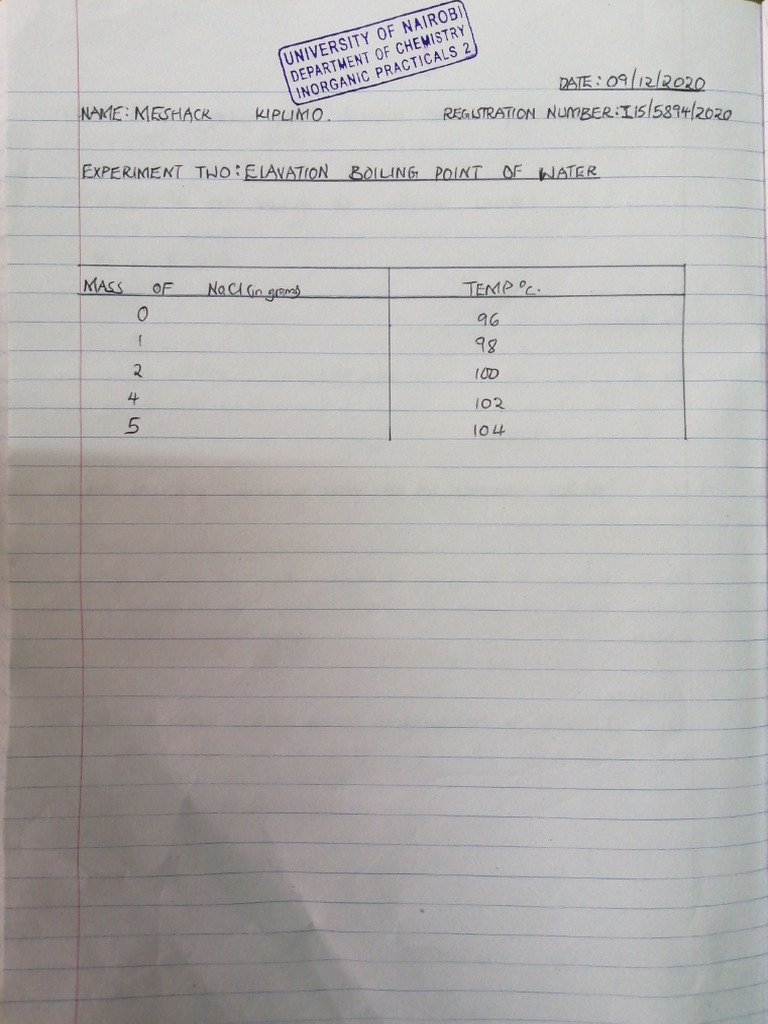 UNIVERSITY OF NAIROBI
DEPARTMENT OF CHEMISTRY
INORGANIC PRACTICALS 2
DATE: 09/12/2020
NAME: MESHACK KIPLIMO. REGISTRATION NUMBER: I15/5894/2020
EXPERIMENT TWO: ELAVATION BOILING POINT OF WATER
MASS OF NaCl (in grams) TEMP °C.
0 96
1 98
2 100
4 102
5 104